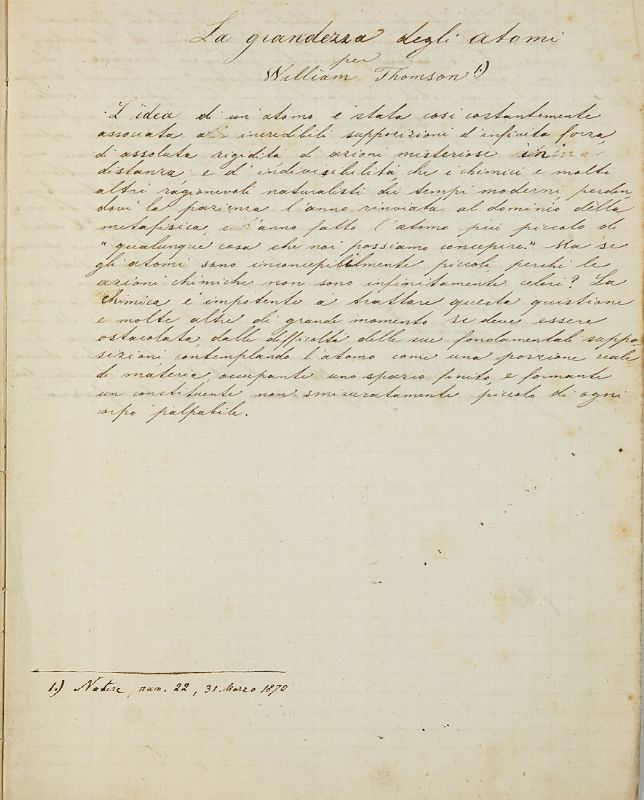 La grandezza degli atomi
per
William Thomson 1.)
L'idea di un'atomo è stata così costantemente
associata a incredibili supposizioni d'infinita forza,
di assoluta rigidità di azioni misteriose in
distanza e d'indivisibilità che i chimici e molti
altri ragionevoli naturalisti dei tempi moderni perden
dovi la pazienza l'anno rinviata al dominio della
metafisica, e anno fatto l'atomo più piccolo di
"qualunque cosa che noi possiamo concepire." Ma se
gli atomi sono inconcepibilmente piccoli perchè le
azioni chimiche non sono infinitamente celeri? La
Chimica è impotente a trattare questa questione
e molte altre di grande momento se deve essere
ostacolata dalle difficoltà delle sue fondamentali suppo
sizioni contemplando l'atomo come una porzione reale
di materia, occupante uno spazio finito, e formante
un constituente non smisuratamente piccolo di ogni
corpo palpabile.
1.) Nature, num. 22, 31 Marzo 1870